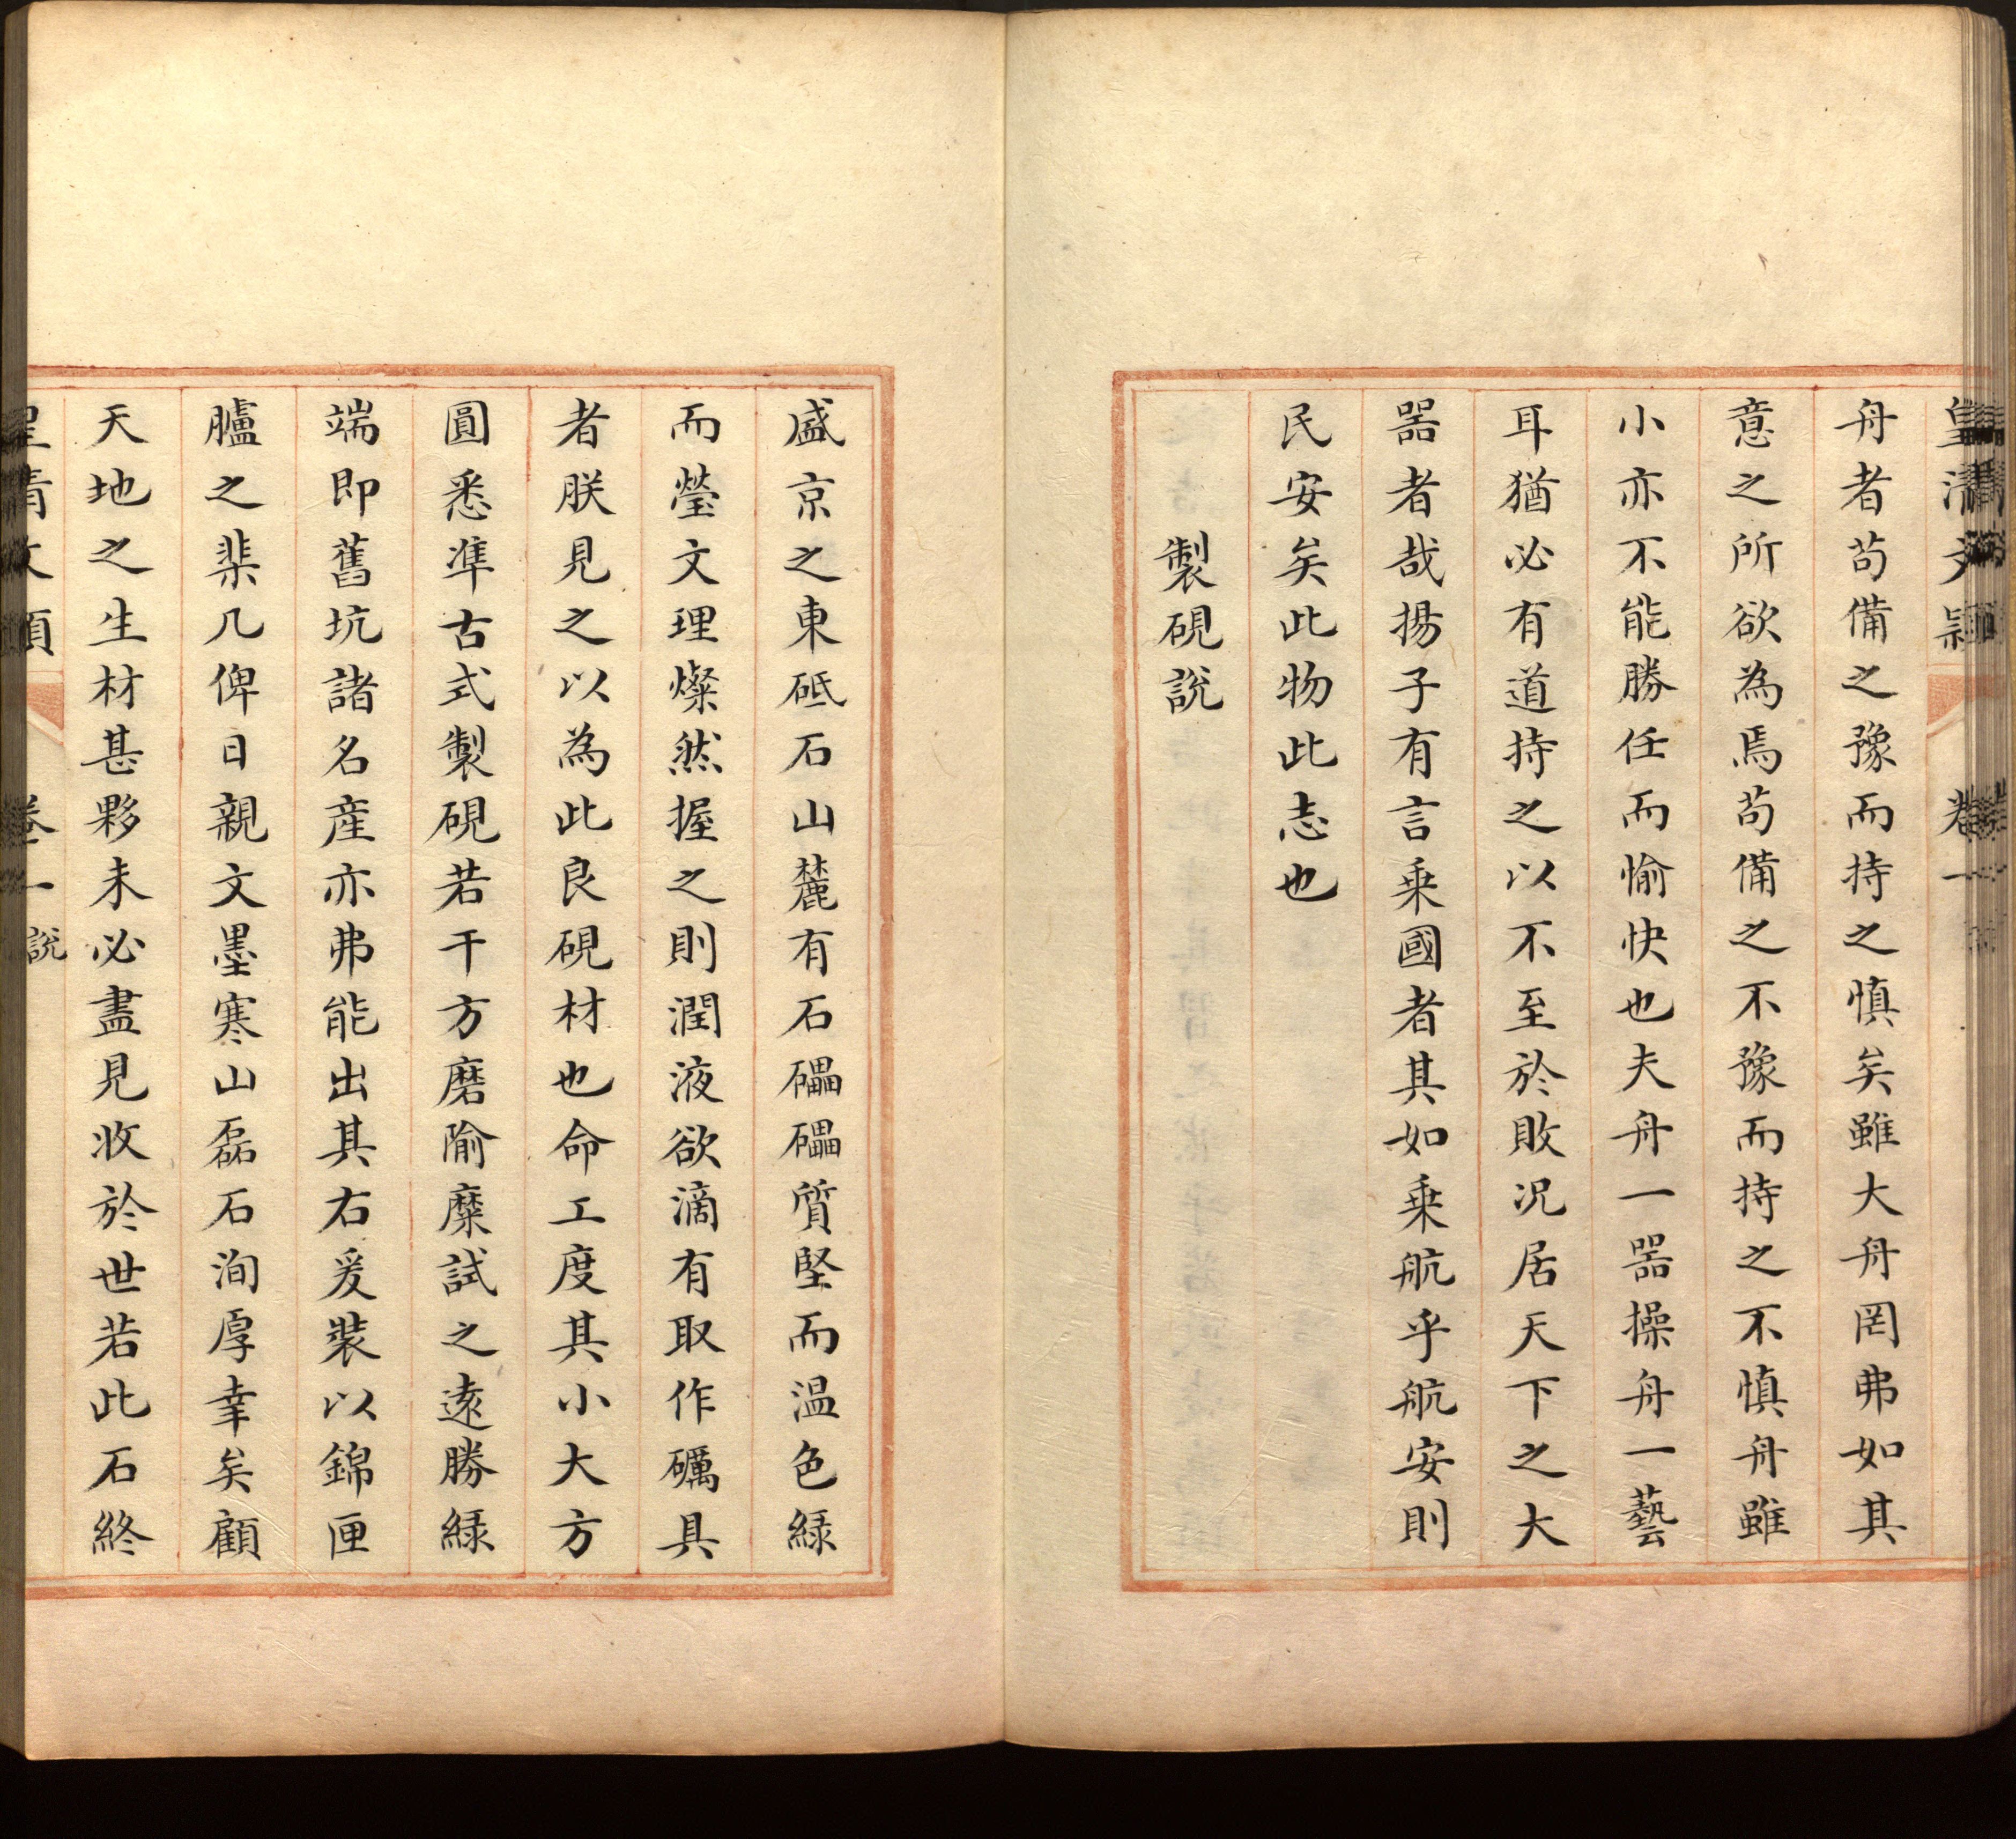 皇清文穎 卷一
舟者苟備之豫而持之慎矣雖大舟罔弗如其
意之所欲為焉苟備之不豫而持之不慎舟雖
小亦不能勝任而愉快也夫舟一器操舟一藝
耳猶必有道持之以不至於敗況居天下之大
器者哉揚子有言乗國者其如乗航乎航安則
民安矣此物此志也
製硯說
盛京之東砥石山麓有石礧礧質堅而温色緑
而瑩文理燦然握之則潤液欲滴有取作礪具
者朕見之以為此良硯材也命工度其小大方
圓悉凖古式製硯若干方磨隃糜試之逺勝緑
端即舊坑諸名産亦弗能出其右爰裝以錦匣
臚之棐几俾日親文墨寒山磊石洵厚幸矣顧
天地之生材甚夥未必盡見收於世若此石終
皇清文穎 卷一 說